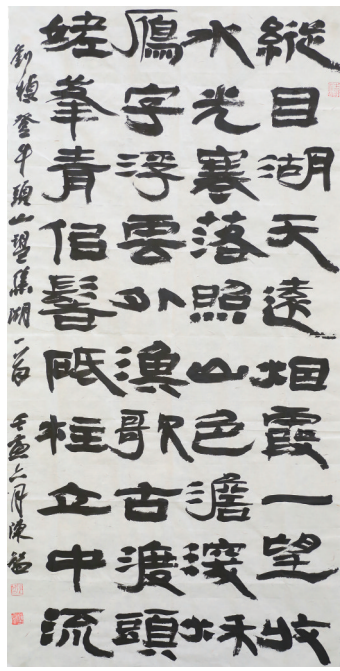 縱目湖天遠烟霞一望收
水光寒落照山色澹深秌
鴈字浮雲外漁歌古渡頭
峯青佀髻砥柱立中流
登牛頭山望湖一首 壬寅六月陳